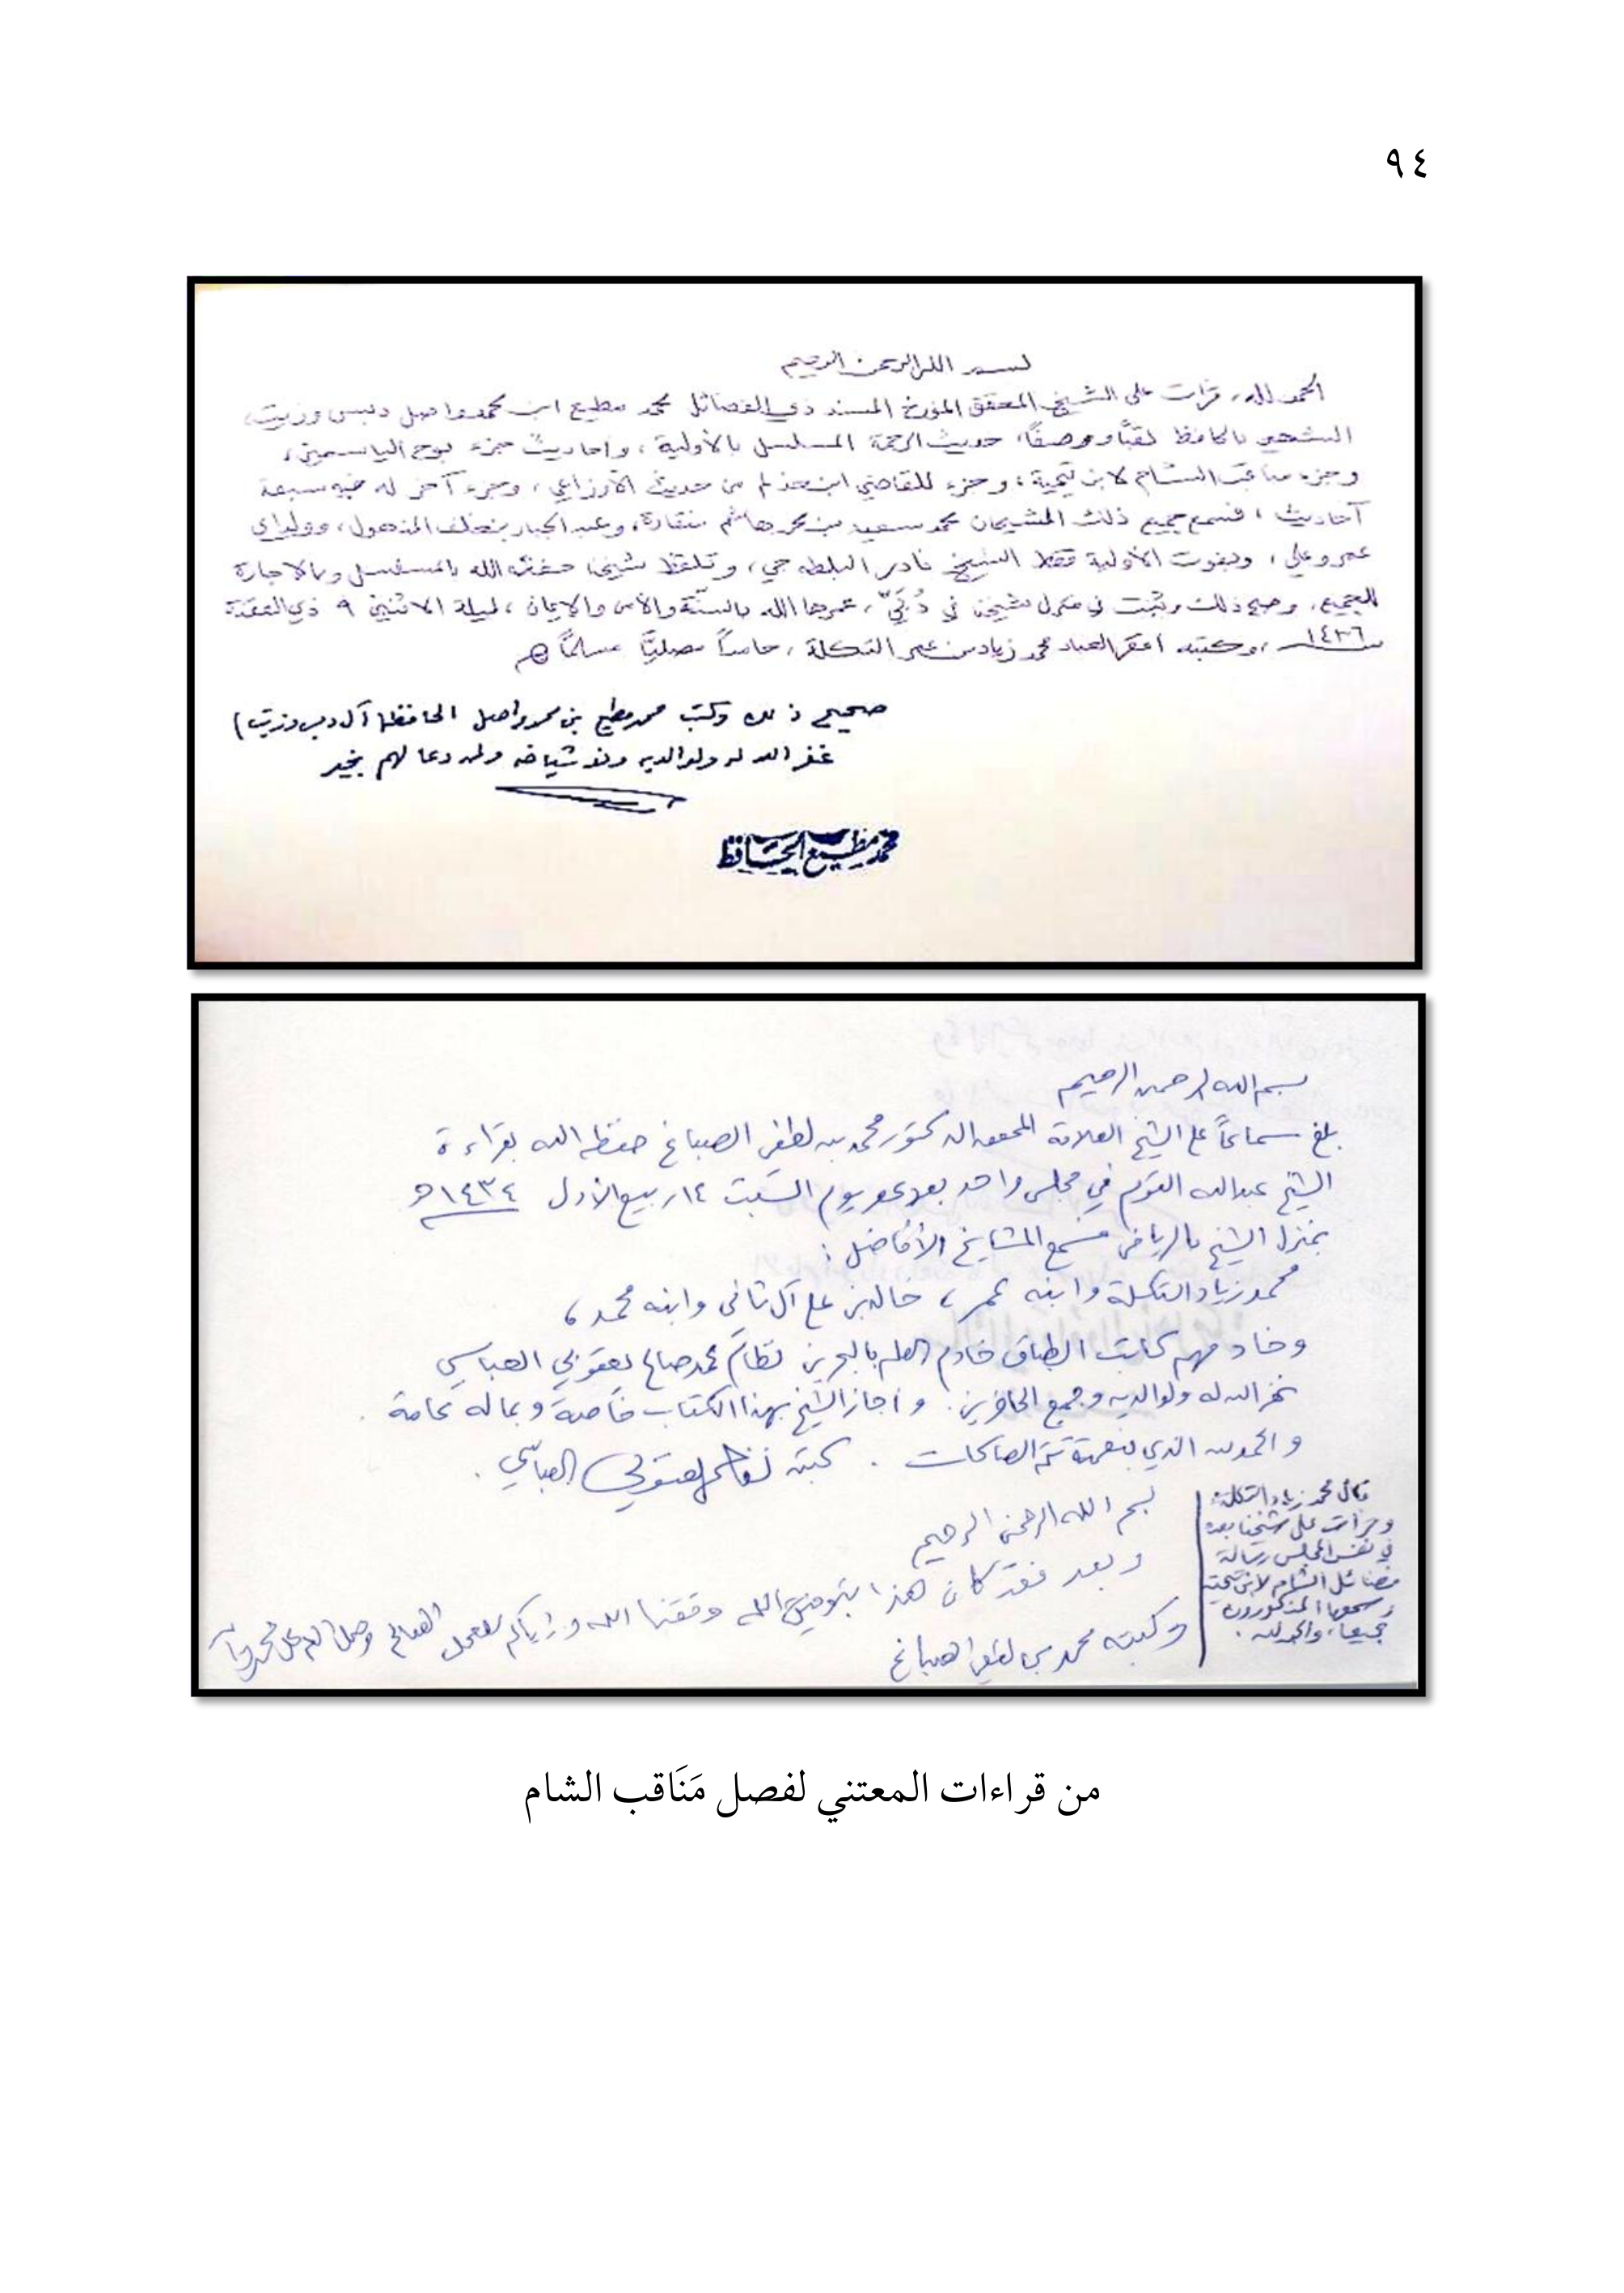 ٩٤
بسم الله الرحمن الرحيم
الحمد لله، قرأت على الشيخ المحقق المؤرخ المسند ذي الفضائل محمد مطيع ابن محمد واصل دبس وزيت،
الشهير بالحافظ لقبًا ووصفًا، حديث الرحمة المسلسل بالأولية، وأحاديث جزء بوح الياسمين،
وجزء مناقب الشام لابن تيمية، وجزء للقاضي ابن حذلم من حديث الأوزاعي، وجزء آخر له فيه سبعة
أحاديث، فسمع جميع ذلك الشيخان محمد سعيد بن محمد هاشم منقارة، وعبد الجبار بن خلف المذهول، وولداي
عمر وعلي، وبفوت الأولية فقط الشيخ نادر البلطه جي، وتلفظ شيخنا حفظه الله بالمسلسل وبالإجازة
للجميع، وصح ذلك وثبت في منزل شيخنا في دُبَيّ، عمرها الله بالسنّة والأمن والإيمان، ليلة الاثنين ٩ ذي القعدة
سنة ١٤٣٦، وكتبه أفقر العباد محمد زياد بن عمر التكلة، حامدًا مصليًّا مسلمًا
صحيح ذلك وكتب محمد مطيع بن محمد واصل الحافظ (آل دبس وزيت)
غفر الله له ولوالديه ولأشياخه ولمن دعا لهم بخير
محمد مطيع الحافظ
بسم الله الرحمن الرحيم
بلغ سماعًا على الشيخ العلامة المحقق الدكتور محمد بن لطفي الصباغ حفظه الله بقراءة
الشيخ عبدالله التوم في مجلس واحد بعد عصر يوم السبت ١٤ ربيع الأول ١٤٣٤هـ
بمنزل الشيخ بالرياض فسمع المشايخ الأفاضل:
محمد زياد التكلة وابنه عمر، خالد بن علي آل ثاني وابنه محمد،
وخادمهم كاتب الطباق خادم العلم بالبحرين نظام محمد صالح يعقوبي العباسي
غفر الله له ولوالديه وجميع الحاضرين. وأجاز الشيخ بهذا الكتاب خاصة وبما له عامة
والحمد لله الذي بنعمته تتم الصالحات. كتبه نظام يعقوبي العباسي.
قال محمد زياد التكلة:
وقرأت على شيخنا بعده
في نفس المجلس رسالة
فضائل الشام لابن تيمية
وسمعها المذكورون
جميعا، والحمد لله.
بسم الله الرحمن الرحيم
وبعد فقد كان هذا بتوفيق الله وفقنا الله وإياكم للعمل الصالح وصلى الله على محمد وآله
وكتبه محمد بن لطفي الصباغ
من قراءات المعتني لفصل مَنَاقب الشام